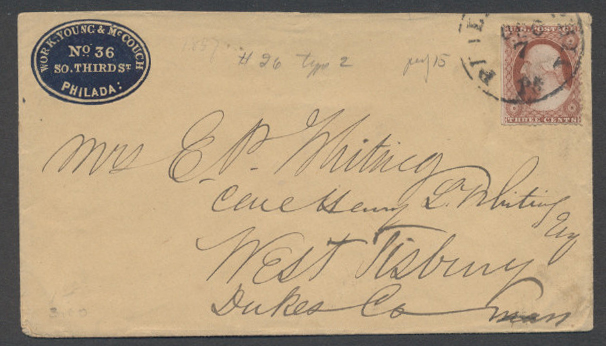 WORK, YOUNG & McCOUCH
No 36
SO. THIRD ST
PHILADA:
1857
# 26 type 2
U.S. POSTAGE
7
PA
THREE CENTS
Mrs E. P. Whiting
Care Henry L. Whiting
Esq
West Tisbury
Dukes Co Mass